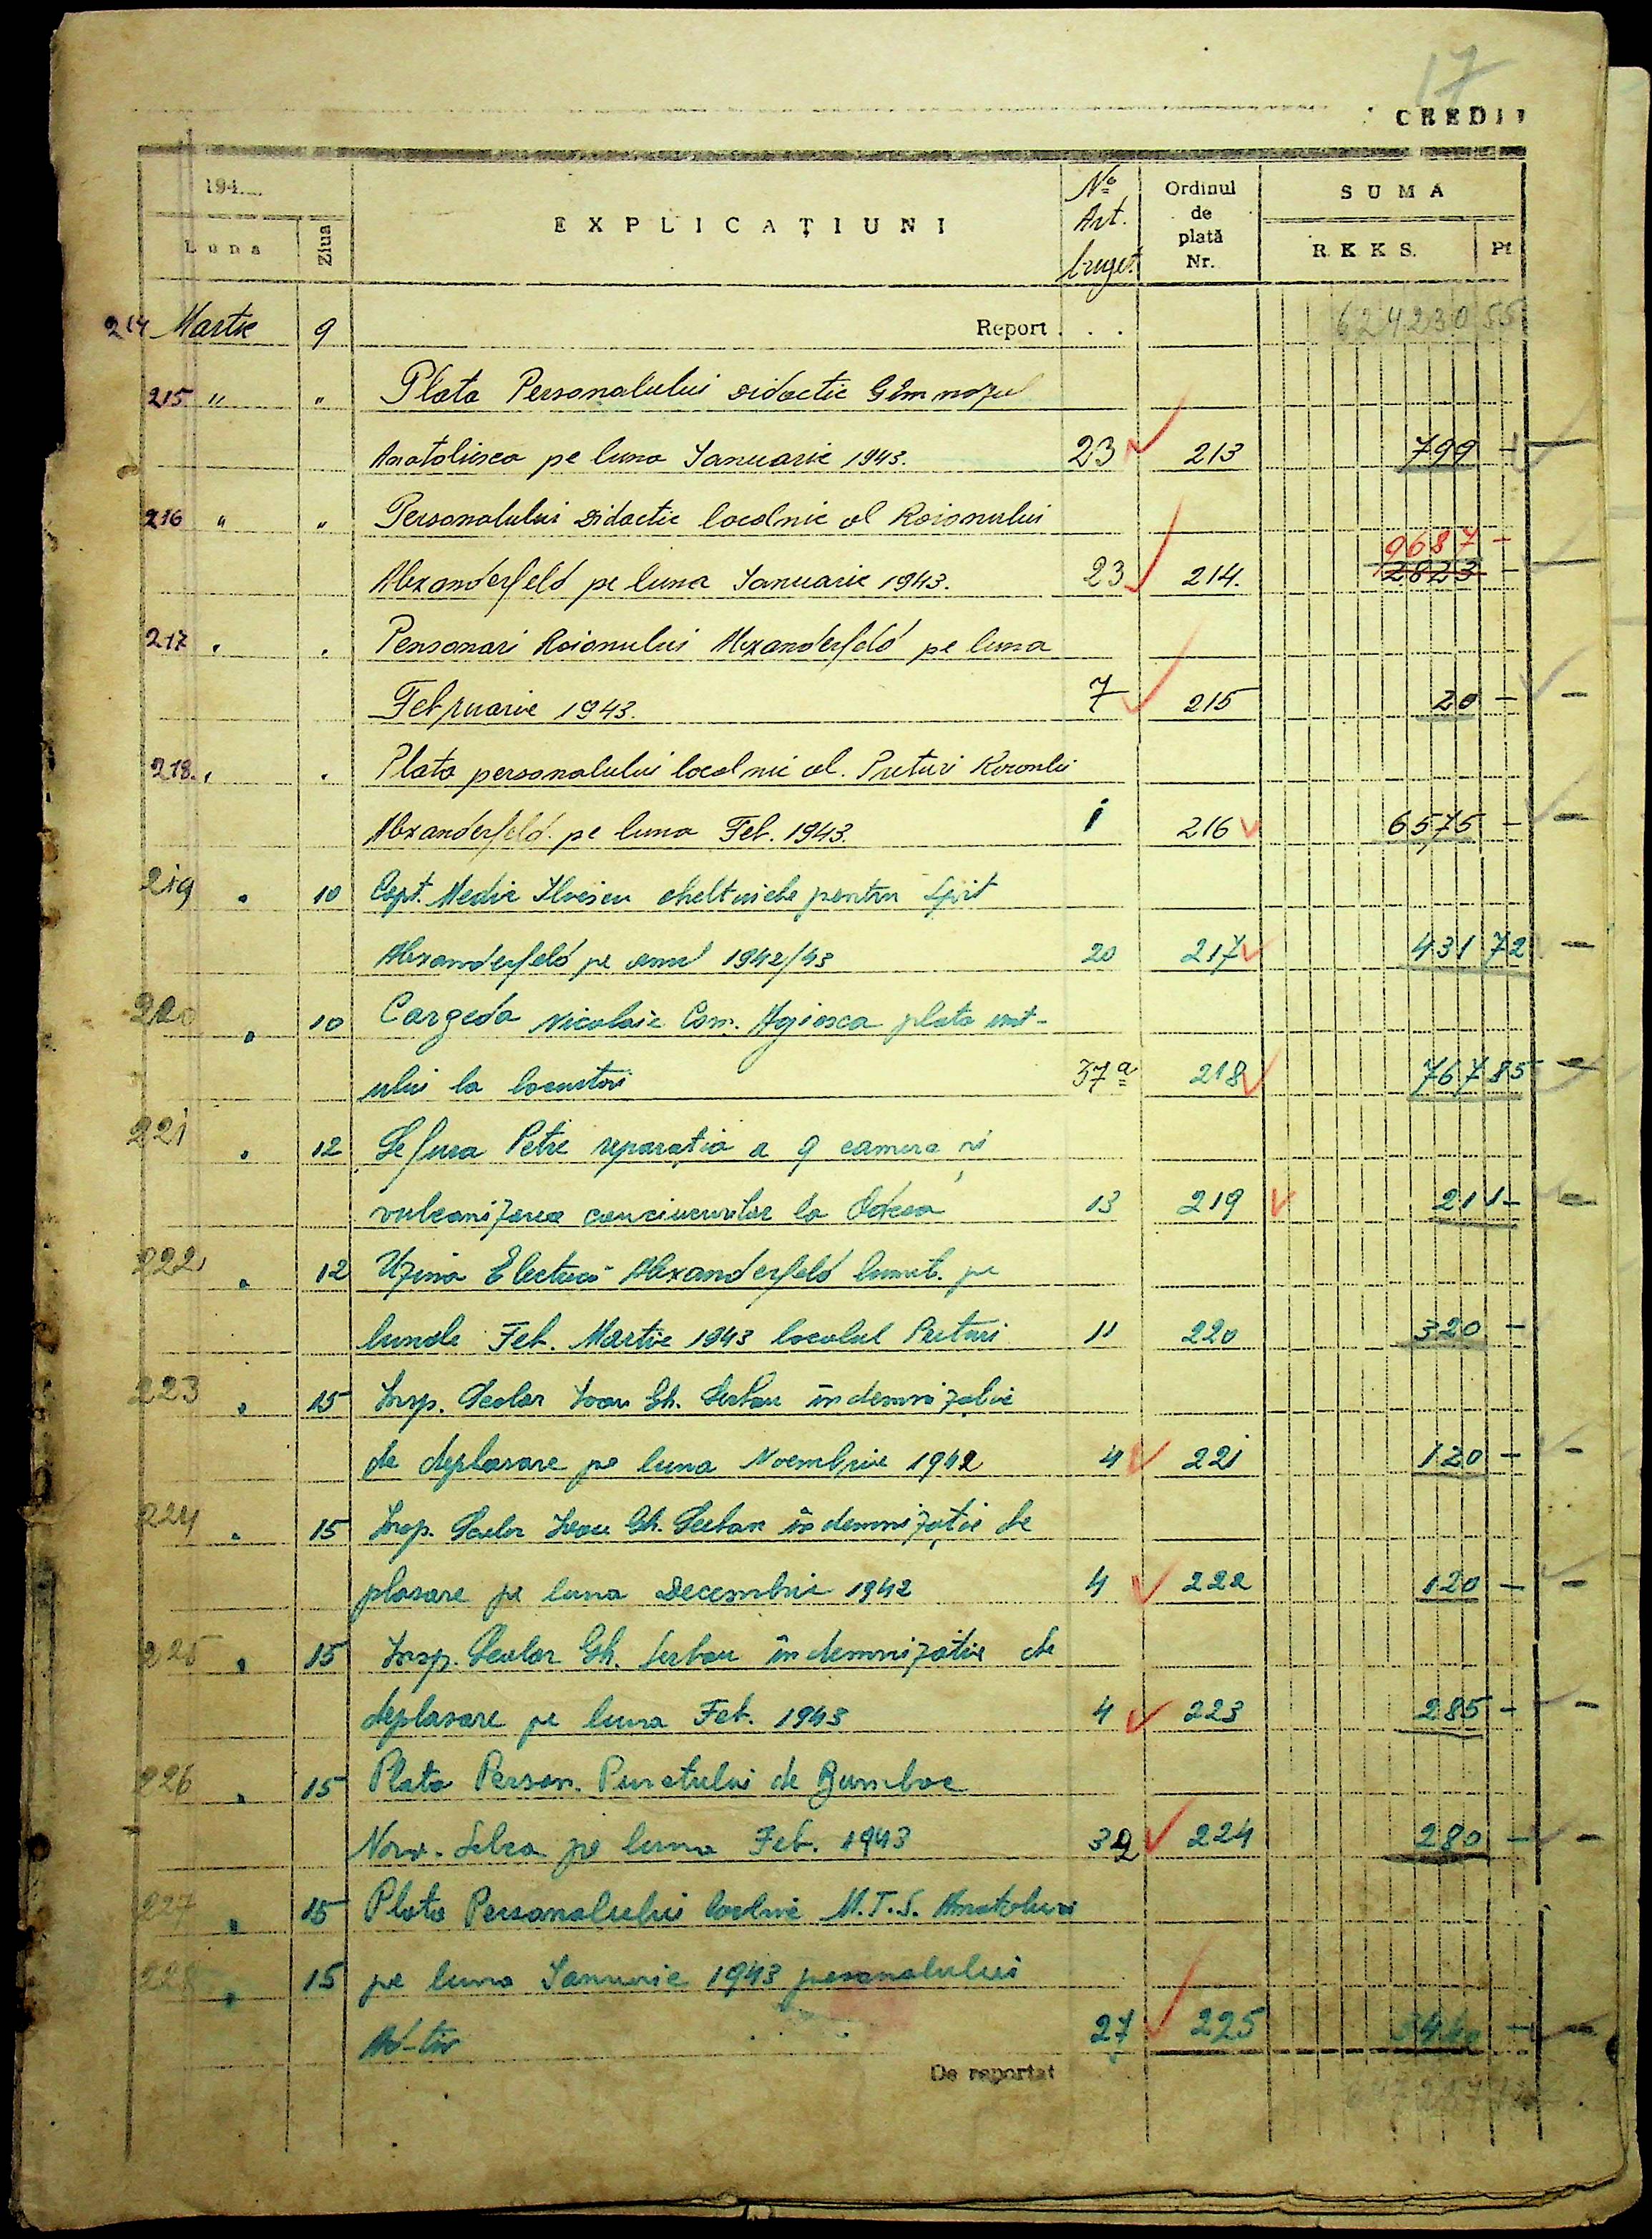 17
CREDIT
194....
Luna
Ziua
EXPLICAȚIUNI
No Art. buget.
Ordinul de plată Nr.
SUMA
R.K.K.S.
Pf
214 Martie 9 Report . . . 624230 55
215 " " Plata Personalului Didactic Gimnazul
Anatoliewca pe luna Ianuarie 1943. 23 213 799 -
216 " " Personalului Didactic localnic al Raionului
9687 -
Alexanderfeld pe luna Ianuarie 1943. 23 214. 2823 -
217 " " Pensonari Raionului Alexanderfeld pe luna
Februarie 1943. 7 215 20 -
218. " " Plata personalului localnic al. Preturi
Alexanderfeld. pe luna Feb. 1943. 1 216 6575 -
219 " 10 Capt. Medic cheltuiele pentru
Alexanderfeld pe anul 1942/43 20 217 431 72
220 " 10 Nicolaie Com. plata unt-
ului la locuitori 37 a 218 767 85
221 " 12 Petre reparația a 9 camere și
vulcanizarea cauciucurilor la Odesa 13 219 211 -
222 " 12 Uzina Electrică Alexanderfeld lumit. pe
lunele Feb. Martie 1943 localul Preturi 11 220 320 -
223 " 15 Insp. Scolar Ioan Gh. Serban indemnizație
de deplasare pe luna Noembrie 1942 4 221 120 -
224 " 15 Insp. Scolar Ioan Gh. Serban indemnizație de
plasare pe luna Decembrie 1942 4 222 120 -
225 " 15 Insp. Scolar Gh. Serban indemnizatie de
deplasare pe luna Feb. 1943 4 223 285 -
226 " 15 Plata Person. Punctului de Bumbac
pe luna Feb. 1943 32 224 280 -
227 " 15 Plata Personalului localnic M.T.S.
228 " 15 pe luna Ianuarie 1943 personalului
Ad-tiv 27 225
De reportat